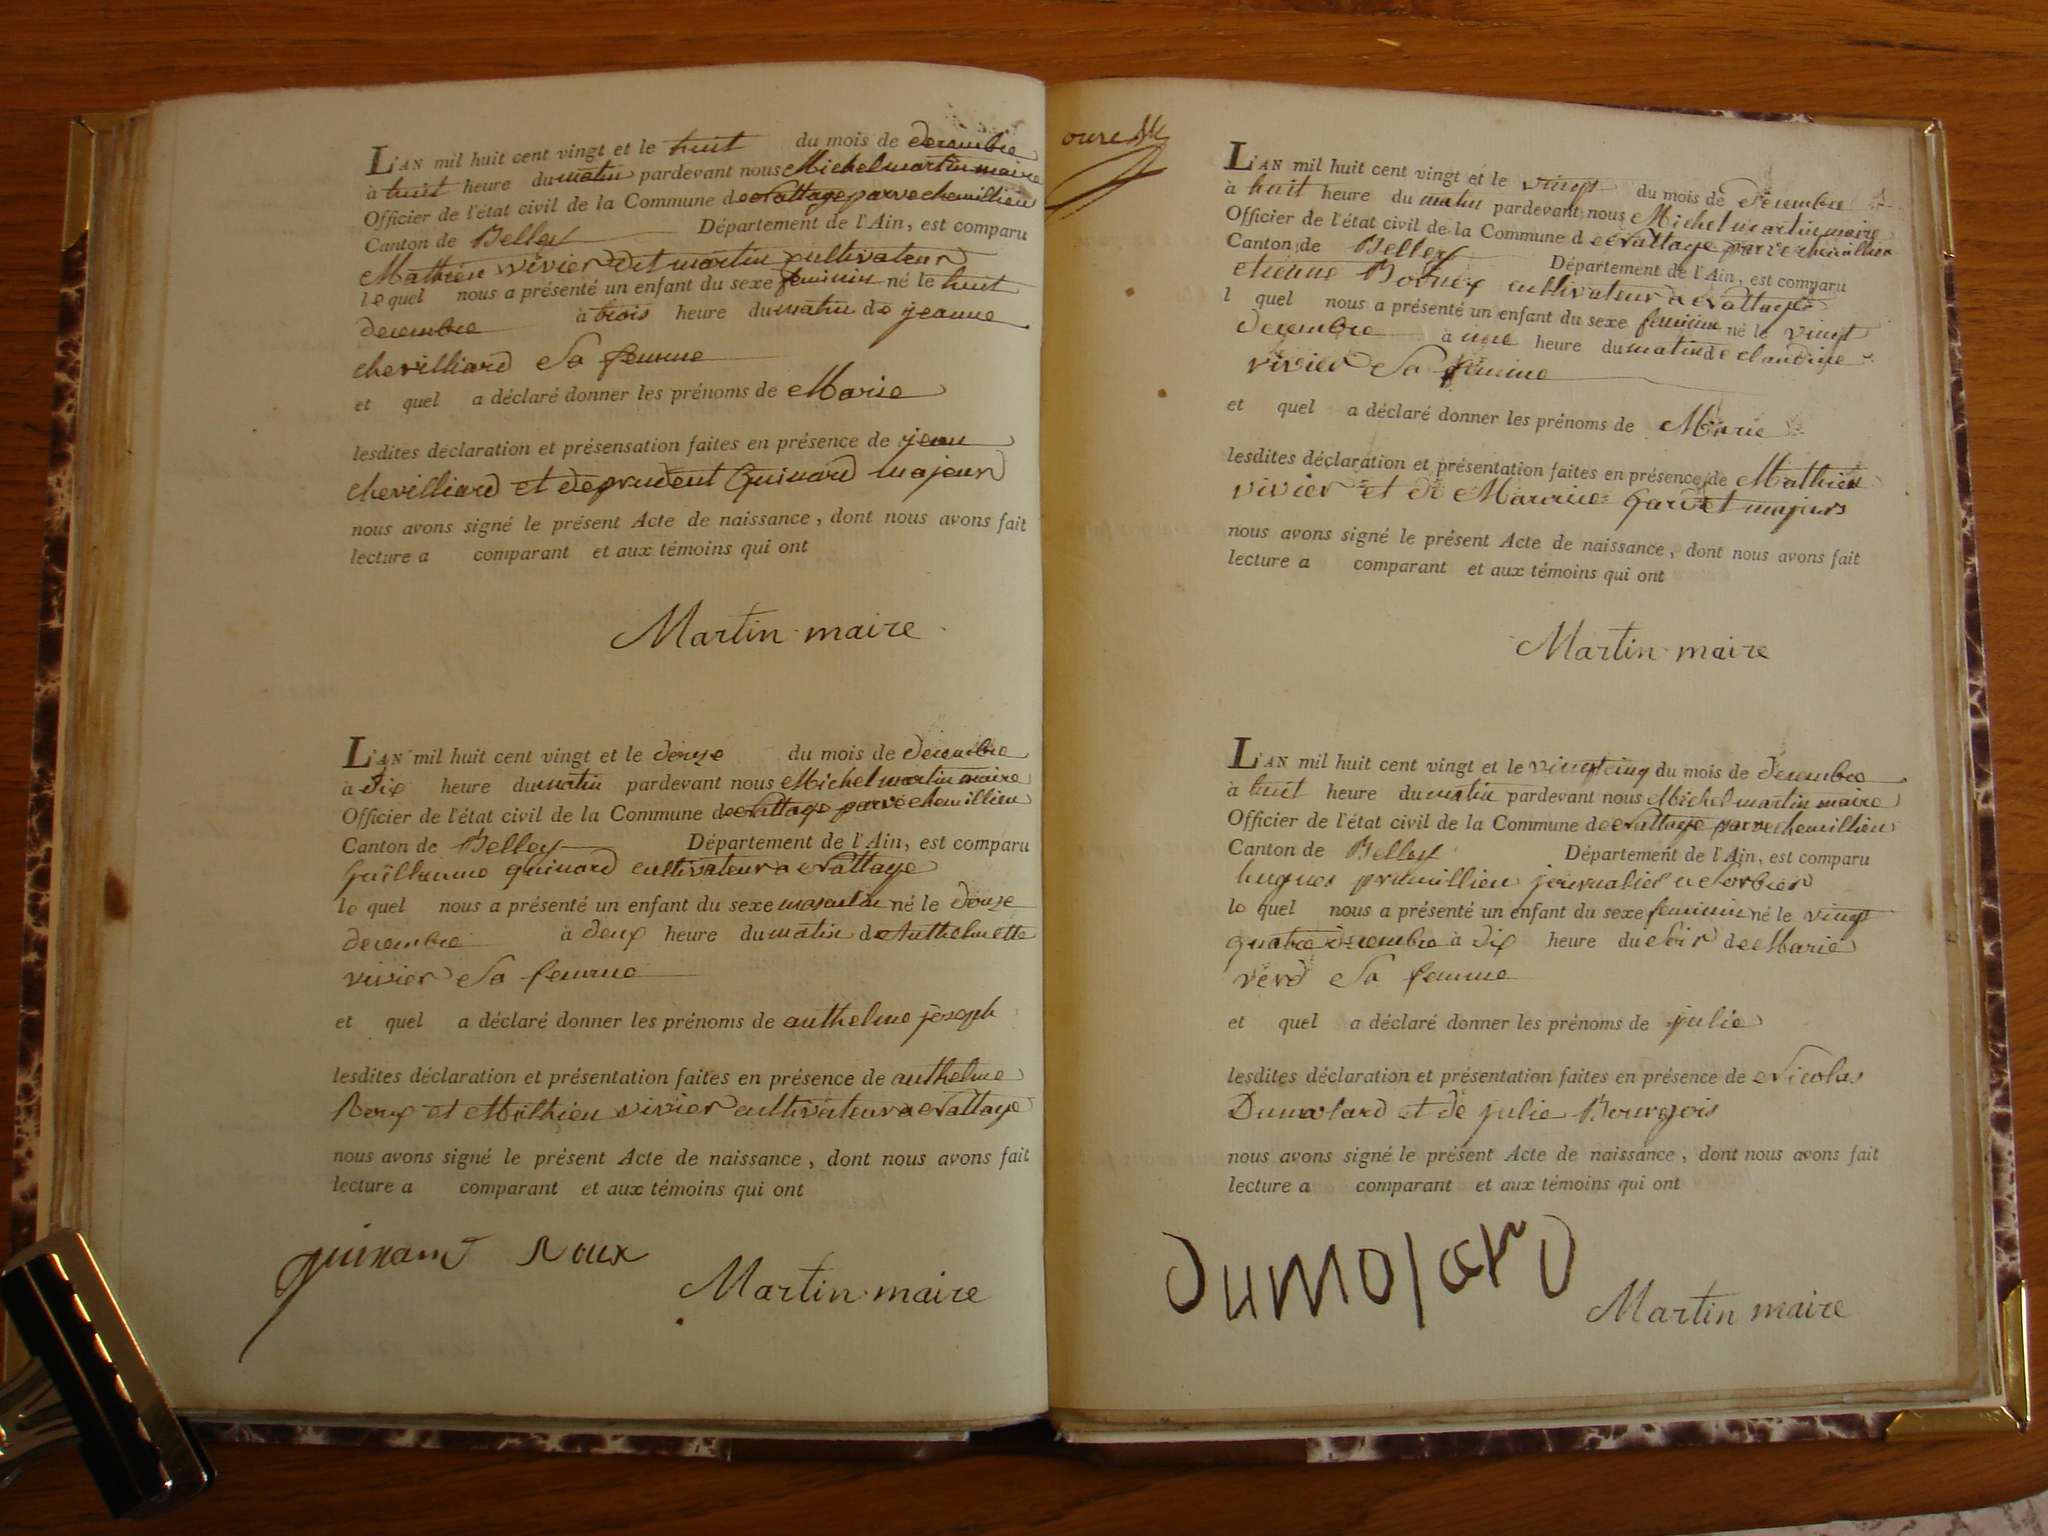 L'AN mil huit cent vingt et le huit du mois de decembre
à huit heure du matin pardevant nous Michel martin maire
Officier de l'état civil de la Commune de Nattage parve chemillieu
Canton de Belley Département de l'Ain, est comparu
Mathieu vivier dit martin cultivateur
le quel nous a présenté un enfant du sexe feminin né le huit
decembre à trois heure du matin de jeanne
chevilliard sa femme
et quel a déclaré donner les prénoms de Marie
lesdites déclaration et présensation faites en présence de jean
chevilliard et de prudent Guinard majeur
nous avons signé le présent Acte de naissance, dont nous avons fait
lecture a comparant et aux témoins qui ont
Martin maire
L'AN mil huit cent vingt et le douze du mois de decembre
à dix heure du matin pardevant nous Michel martin maire
Officier de l'état civil de la Commune de Nattage parve chemillieu
Canton de Belley Département de l'Ain, est comparu
Guillaume guinard cultivateur a Nattage
le quel nous a présenté un enfant du sexe masculin né le douze
decembre à deux heure du matin de Anthelmette
vivier sa femme
et quel a déclaré donner les prénoms de anthelme joseph
lesdites déclaration et présentation faites en présence de anthelme
Roux et Mathieu vivier cultivateur a Nattage
nous avons signé le présent Acte de naissance, dont nous avons fait
lecture a comparant et aux témoins qui ont
guinard Roux
Martin maire
L'AN mil huit cent vingt et le vingt du mois de decembre
à huit heure du matin pardevant nous Michel martin maire
Officier de l'état civil de la Commune d e Nattage parve chemillieu
Canton de Belley Département de l'Ain, est comparu
etienne Bornex cultivateur a Nattage
l quel nous a présenté un enfant du sexe feminin né le vingt
decembre à une heure du matin de claudine
vivier sa femme
et quel a déclaré donner les prénoms de Marie
lesdites déclaration et présentation faites en présence de Mathieu
vivier et de Maurice Gardet majeurs
nous avons signé le présent Acte de naissance, dont nous avons fait
lecture a comparant et aux témoins qui ont
Martin maire
L'AN mil huit cent vingt et le vingtcinq du mois de decembre
à huit heure du matin pardevant nous Michel martin maire
Officier de l'état civil de la Commune de Nattage parve chemillieu
Canton de Belley Département de l'Ain, est comparu
hugues premillieu journalier a Sorbier
le quel nous a présenté un enfant du sexe feminin né le vingt
quatre decembre à dix heure du soir de Marie
verd sa femme
et quel a déclaré donner les prénoms de julie
lesdites déclaration et présentation faites en présence de Nicolas
Dumolard et de julie Bourgeois
nous avons signé le présent Acte de naissance, dont nous avons fait
lecture a comparant et aux témoins qui ont
dumolard
Martin maire